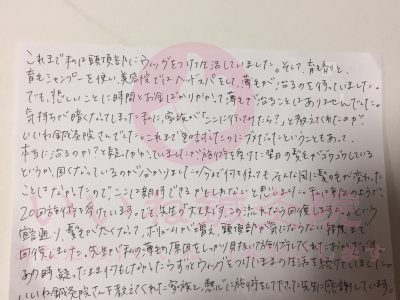 これまで私は頭頂部にウィッグをつけて生活していました。そして、育毛剤と、
育毛シャンプーを使い、美容院ではヘッドスパをして、薄毛が治るのを待っていました。
でも、悲しいことに時間とお金ばかりかかって薄毛が治ることはありませんでした。
気持ちが暗くなってしまった私に、家族が「ここに行ってみたら？」と教えてくれたのが
いいわ鍼灸院さんでした。これまで色々試したのにダメだったということもあって、
本当に治るのか？と疑ってかかっていましたが施術を受けた翌日の髪がゴワゴワしている
というか、固くなっているのがわかりました。今まで何を使ってもそんな風に髪の毛が変わった
ことはなかったので、ここには期待できるかもしれないと思いました。私は先生のもとで、
20回施術を受けています。でも、先生が「大丈夫です、この流れなら回復します。」という
宣言通り、髪がかたくなって、ボリュームが増え、頭頂部が気にならない程度まで
回復しました。先生が私の薄毛の原因をしっかり見ない方針を行ってくれたおかげです。
あの時、疑ったまま行けもしなかったらずっとウィッグをつけたままの生活を続けてしました。
いいわ鍼灸院さんを教えてくれた家族と熱心に施術をして下さった先生に感謝しています。